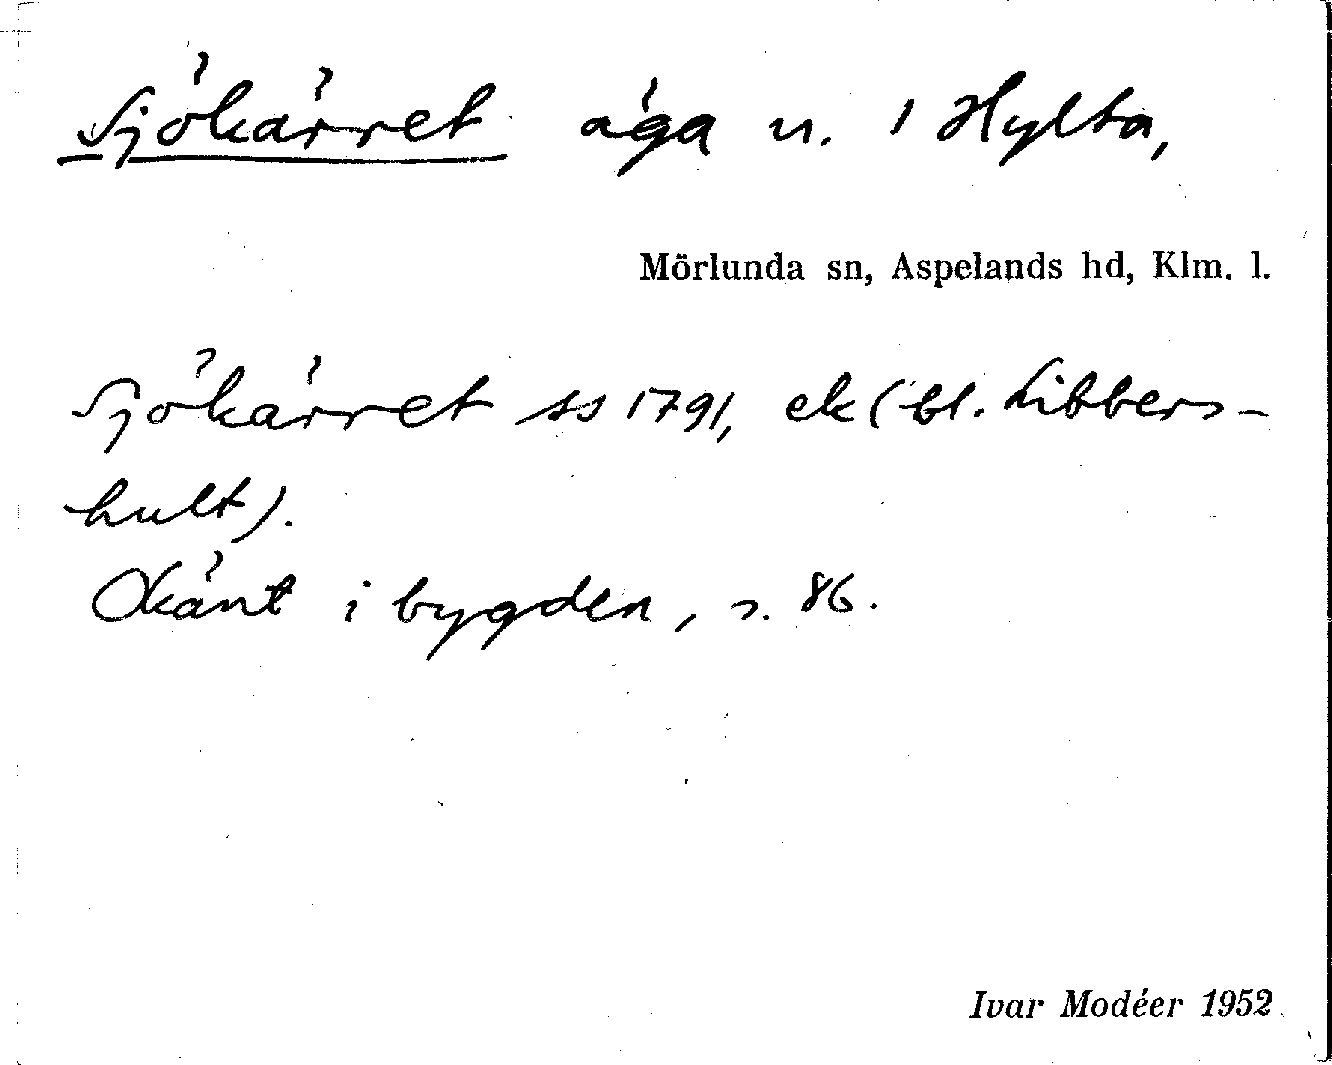 Sjökärret äga u. 1 Hylta,
Mörlunda sn, Aspelands hd, Klm. l.
Sjökärret ss 1791, ek (bl. Libbers-
hult).
Okänt i bygden, s. 86.
Ivar Modéer 1952